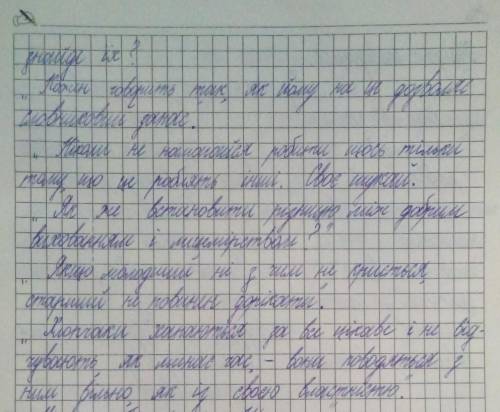 знайде їх?
„Кожен говорить так, як йому на це дозволяє
словниковий запас.
„Ніколи не намагайся робити щось тільки
тому, що це роблять інші. Своє шукай.
„Як же встановити різницю між добрим
вихованням і лицемірством?"
„Якщо молодший не з чим не криється,
старший не повинен дорікати".
„Хлопчаки хапаються за все цікаве і не від-
чувають, як минає час, – вони поводяться з
ним вільно, як із своєю власністю"